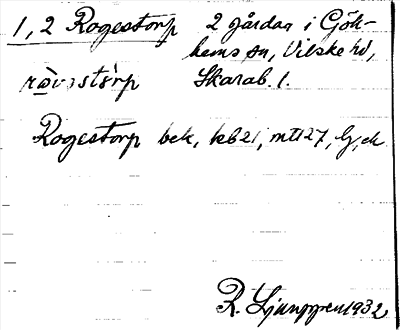 1, 2 Rogestorp 2 gårdar i Gök-
hems sn, Vilske hd,
Skarab. l.
Rogestorp bek, kb21, mtl27,
R. Ljunggren 1932